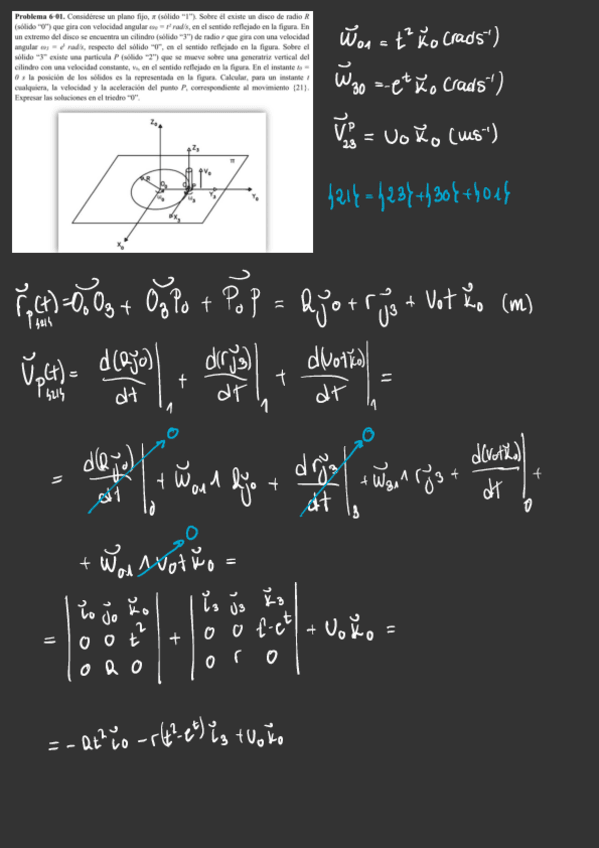 Problema 6-01. Considérese un plano fijo, π (sólido “1”). Sobre él existe un disco de radio R
(sólido “0”) que gira con velocidad angular ω₀ = t² rad/s, en el sentido reflejado en la figura. En
un extremo del disco se encuentra un cilindro (sólido “3”) de radio r que gira con una velocidad
angular ω₃ = eᵗ rad/s, respecto del sólido “0”, en el sentido reflejado en la figura. Sobre el
sólido “3” existe una partícula P (sólido “2”) que se mueve sobre una generatriz vertical del
cilindro con una velocidad constante, v₀, en el sentido reflejado en la figura. En el instante t₀ =
0 s la posición de los sólidos es la representada en la figura. Calcular, para un instante t
cualquiera, la velocidad y la aceleración del punto P, correspondiente al movimiento {21}.
Expresar las soluciones en el triedro “0”.
Z₀
Z₃
π
V₀
R
Y₃ Y₀
X₃
X₀
w⃗₀₁ = t² k⃗₀ (rads⁻¹)
w⃗₃₀ = -eᵗ k⃗₀ (rads⁻¹)
v⃗ᴾ₂₃ = v₀ k⃗₀ (ms⁻¹)
{21} = {23} + {30} + {01}
r⃗p(t){21} = O₀O₃ + O₃P₀ + P₀P = R j⃗₀ + r j⃗₃ + v₀t k⃗₀ (m)
v⃗p(t){21} = d(R j⃗₀)/dt |₁ + d(r j⃗₃)/dt |₁ + d(v₀t k⃗₀)/dt |₁ =
= d(R j⃗₀)/dt |₀ 0 + w⃗₀₁ ∧ R j⃗₀ + d r j⃗₃/dt |₃ 0 + w⃗₃₁ ∧ r j⃗₃ + d(v₀t k⃗₀)/dt |₀ +
+ w⃗₀₁ ∧ v₀t k⃗₀ 0 =
= | i⃗₀ j⃗₀ k⃗₀ 0 0 t² 0 R 0 | + | i⃗₃ j⃗₃ k⃗₃ 0 0 t²-eᵗ 0 r 0 | + v₀ k⃗₀ =
= - R t² i⃗₀ - r(t²-eᵗ) i⃗₃ + v₀ k⃗₀